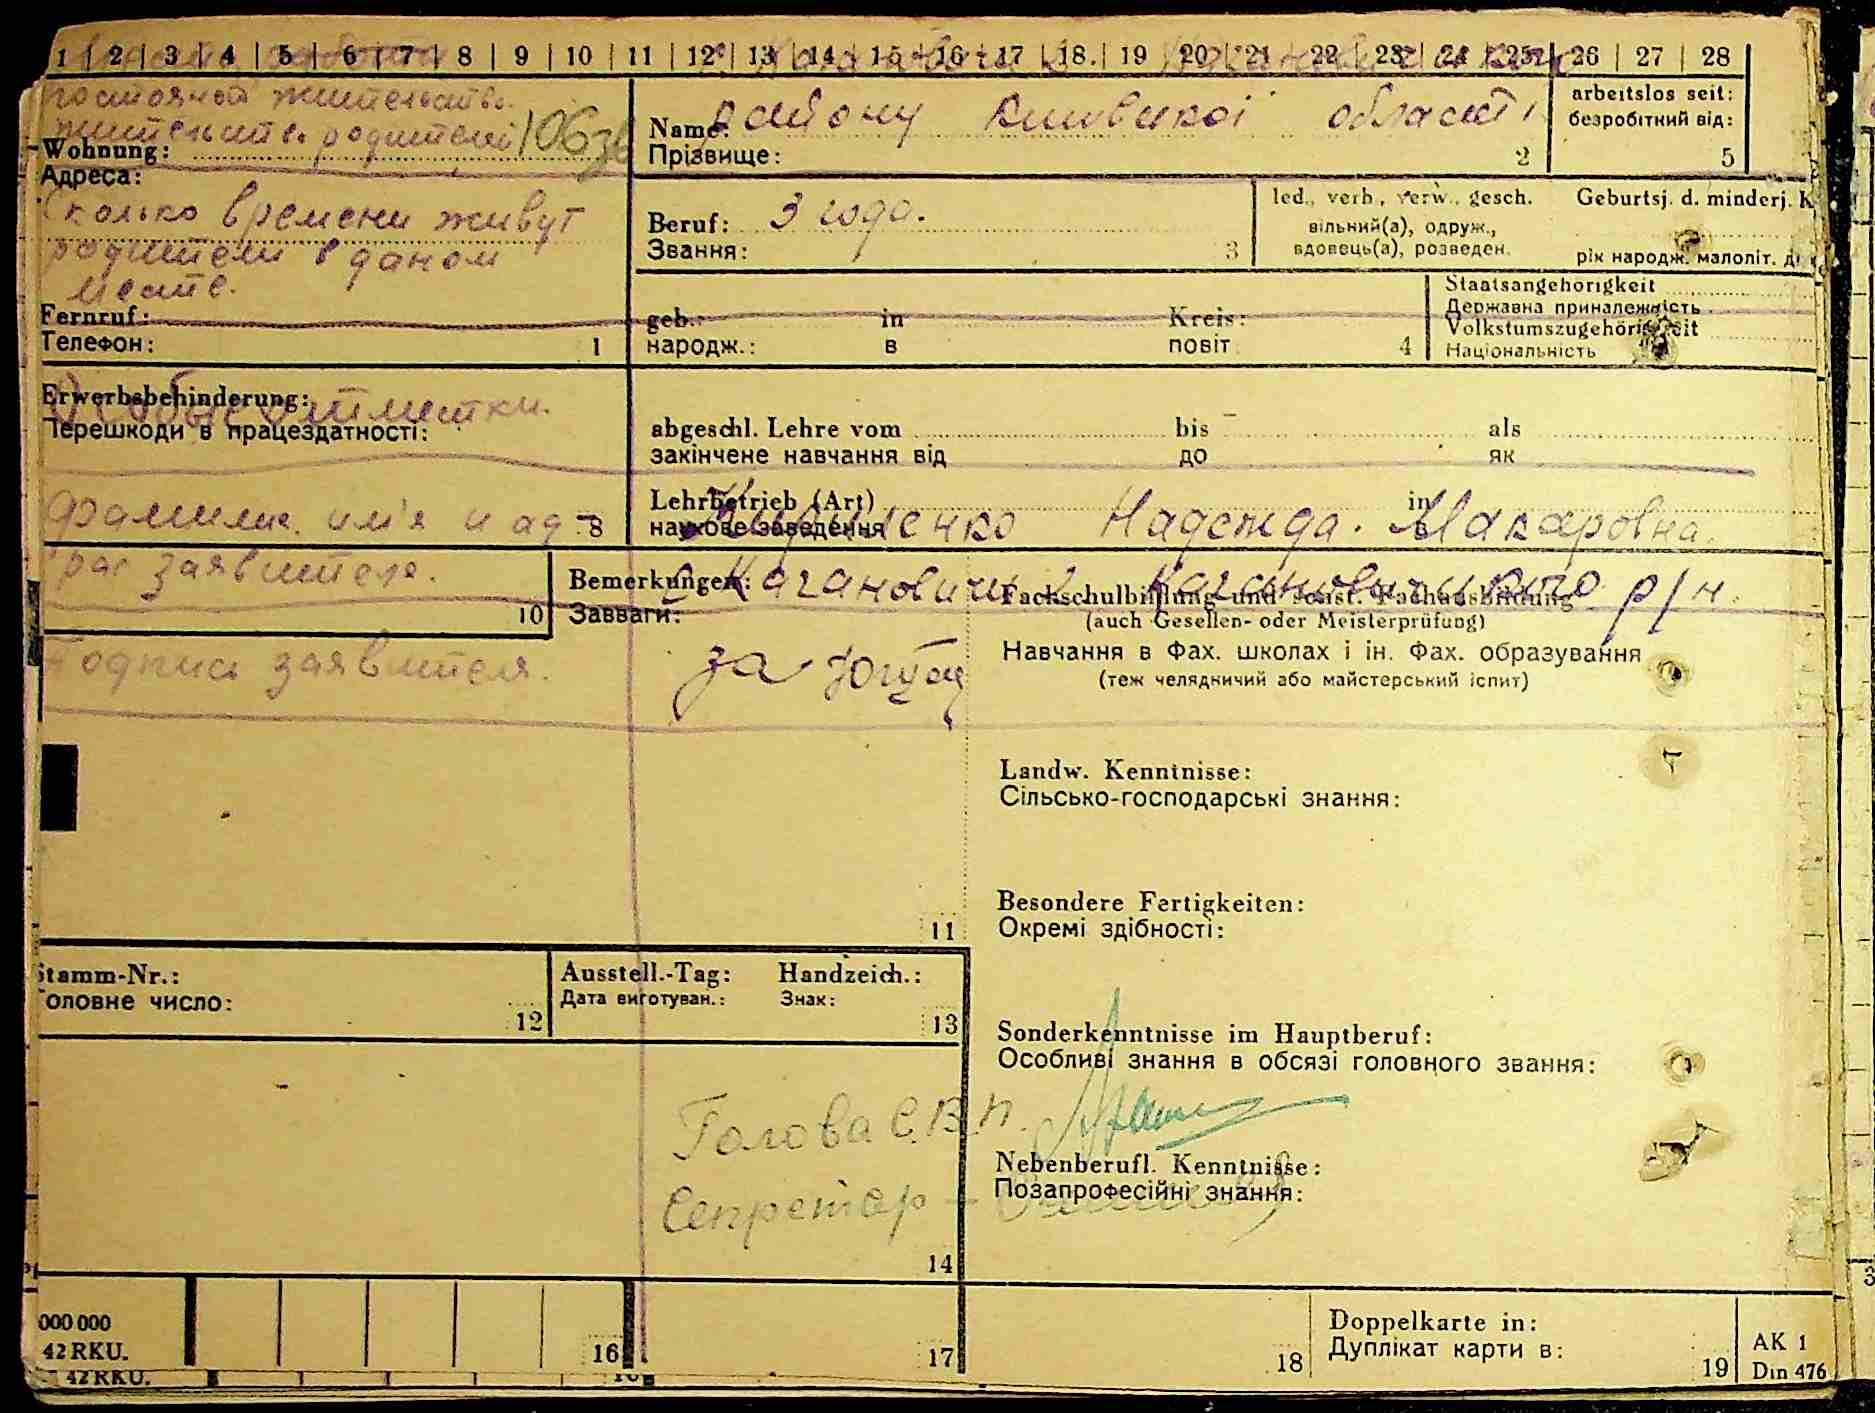 1 | 2 | 3 | 4 | 5 | 6 | 7 | 8 | 9 | 10 | 11 | 12 | 13 | 14 | 15 | 16 | 17 | 18 | 19 | 20 | 21 | 22 | 23 | 24 | 25 | 26 | 27 | 28
постоянно жительств.
жительств. родителей 106
Wohnung:
Адреса:
Сколько времени живут
родители в даном
месте.
Fernruf:
Телефон: 1
Name: району Київської області
Прізвище: 2
arbeitslos seit:
безробітний від:
5
Beruf: 3 года.
Звання: 3
led., verh., verw., gesch.
вільний(а), одруж.,
вдовець(а), розведен.
Geburtsj. d. minderj. K
рік народж. малоліт. ді
geb.: in Kreis:
народж.: в повіт 4
Staatsangehörigkeit
Державна приналежність
Volkstumszugehörigkeit
Національність
Erwerbsbehinderung:
Особые отметки.
Перешкоди в працездатності:
abgeschl. Lehre vom bis als
закінчене навчання від до як
Lehrbetrieb (Art) in
наукове заведення в
фамилия им'я и ад- 8
Надежда Макаровна.
рас заявителя.
10
Bemerkungen:
Завваги:
Каганович 2 р/н.
Fachschulbildung und sonst. Fachausbildung
(auch Gesellen- oder Meisterprüfung)
Навчання в Фах. школах і ін. Фах. образування
(теж челядничий або майстерський іспит)
Подпись заявителя.
за
Landw. Kenntnisse:
Сільсько-господарські знання:
Besondere Fertigkeiten:
Окремі здібності:
11
Stamm-Nr.:
Головне число:
12
Ausstell.-Tag: Handzeich.:
Дата виготуван.: Знак:
13
Sonderkenntnisse im Hauptberuf:
Особливі знання в обсязі головного звання:
Голова С.В.П.
Nebenberufl. Kenntnisse:
Позапрофесійні знання:
Секретар -
14
000 000
42 RKU.
16
17
18
Doppelkarte in:
Дуплікат карти в:
19
AK 1
Din 476
42 RKU.